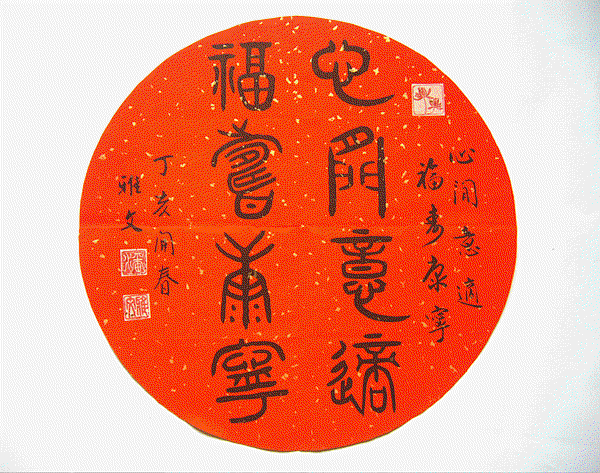 心閒意適
福壽康寧
心閒意適
福壽康寧
丁亥開春
雅文